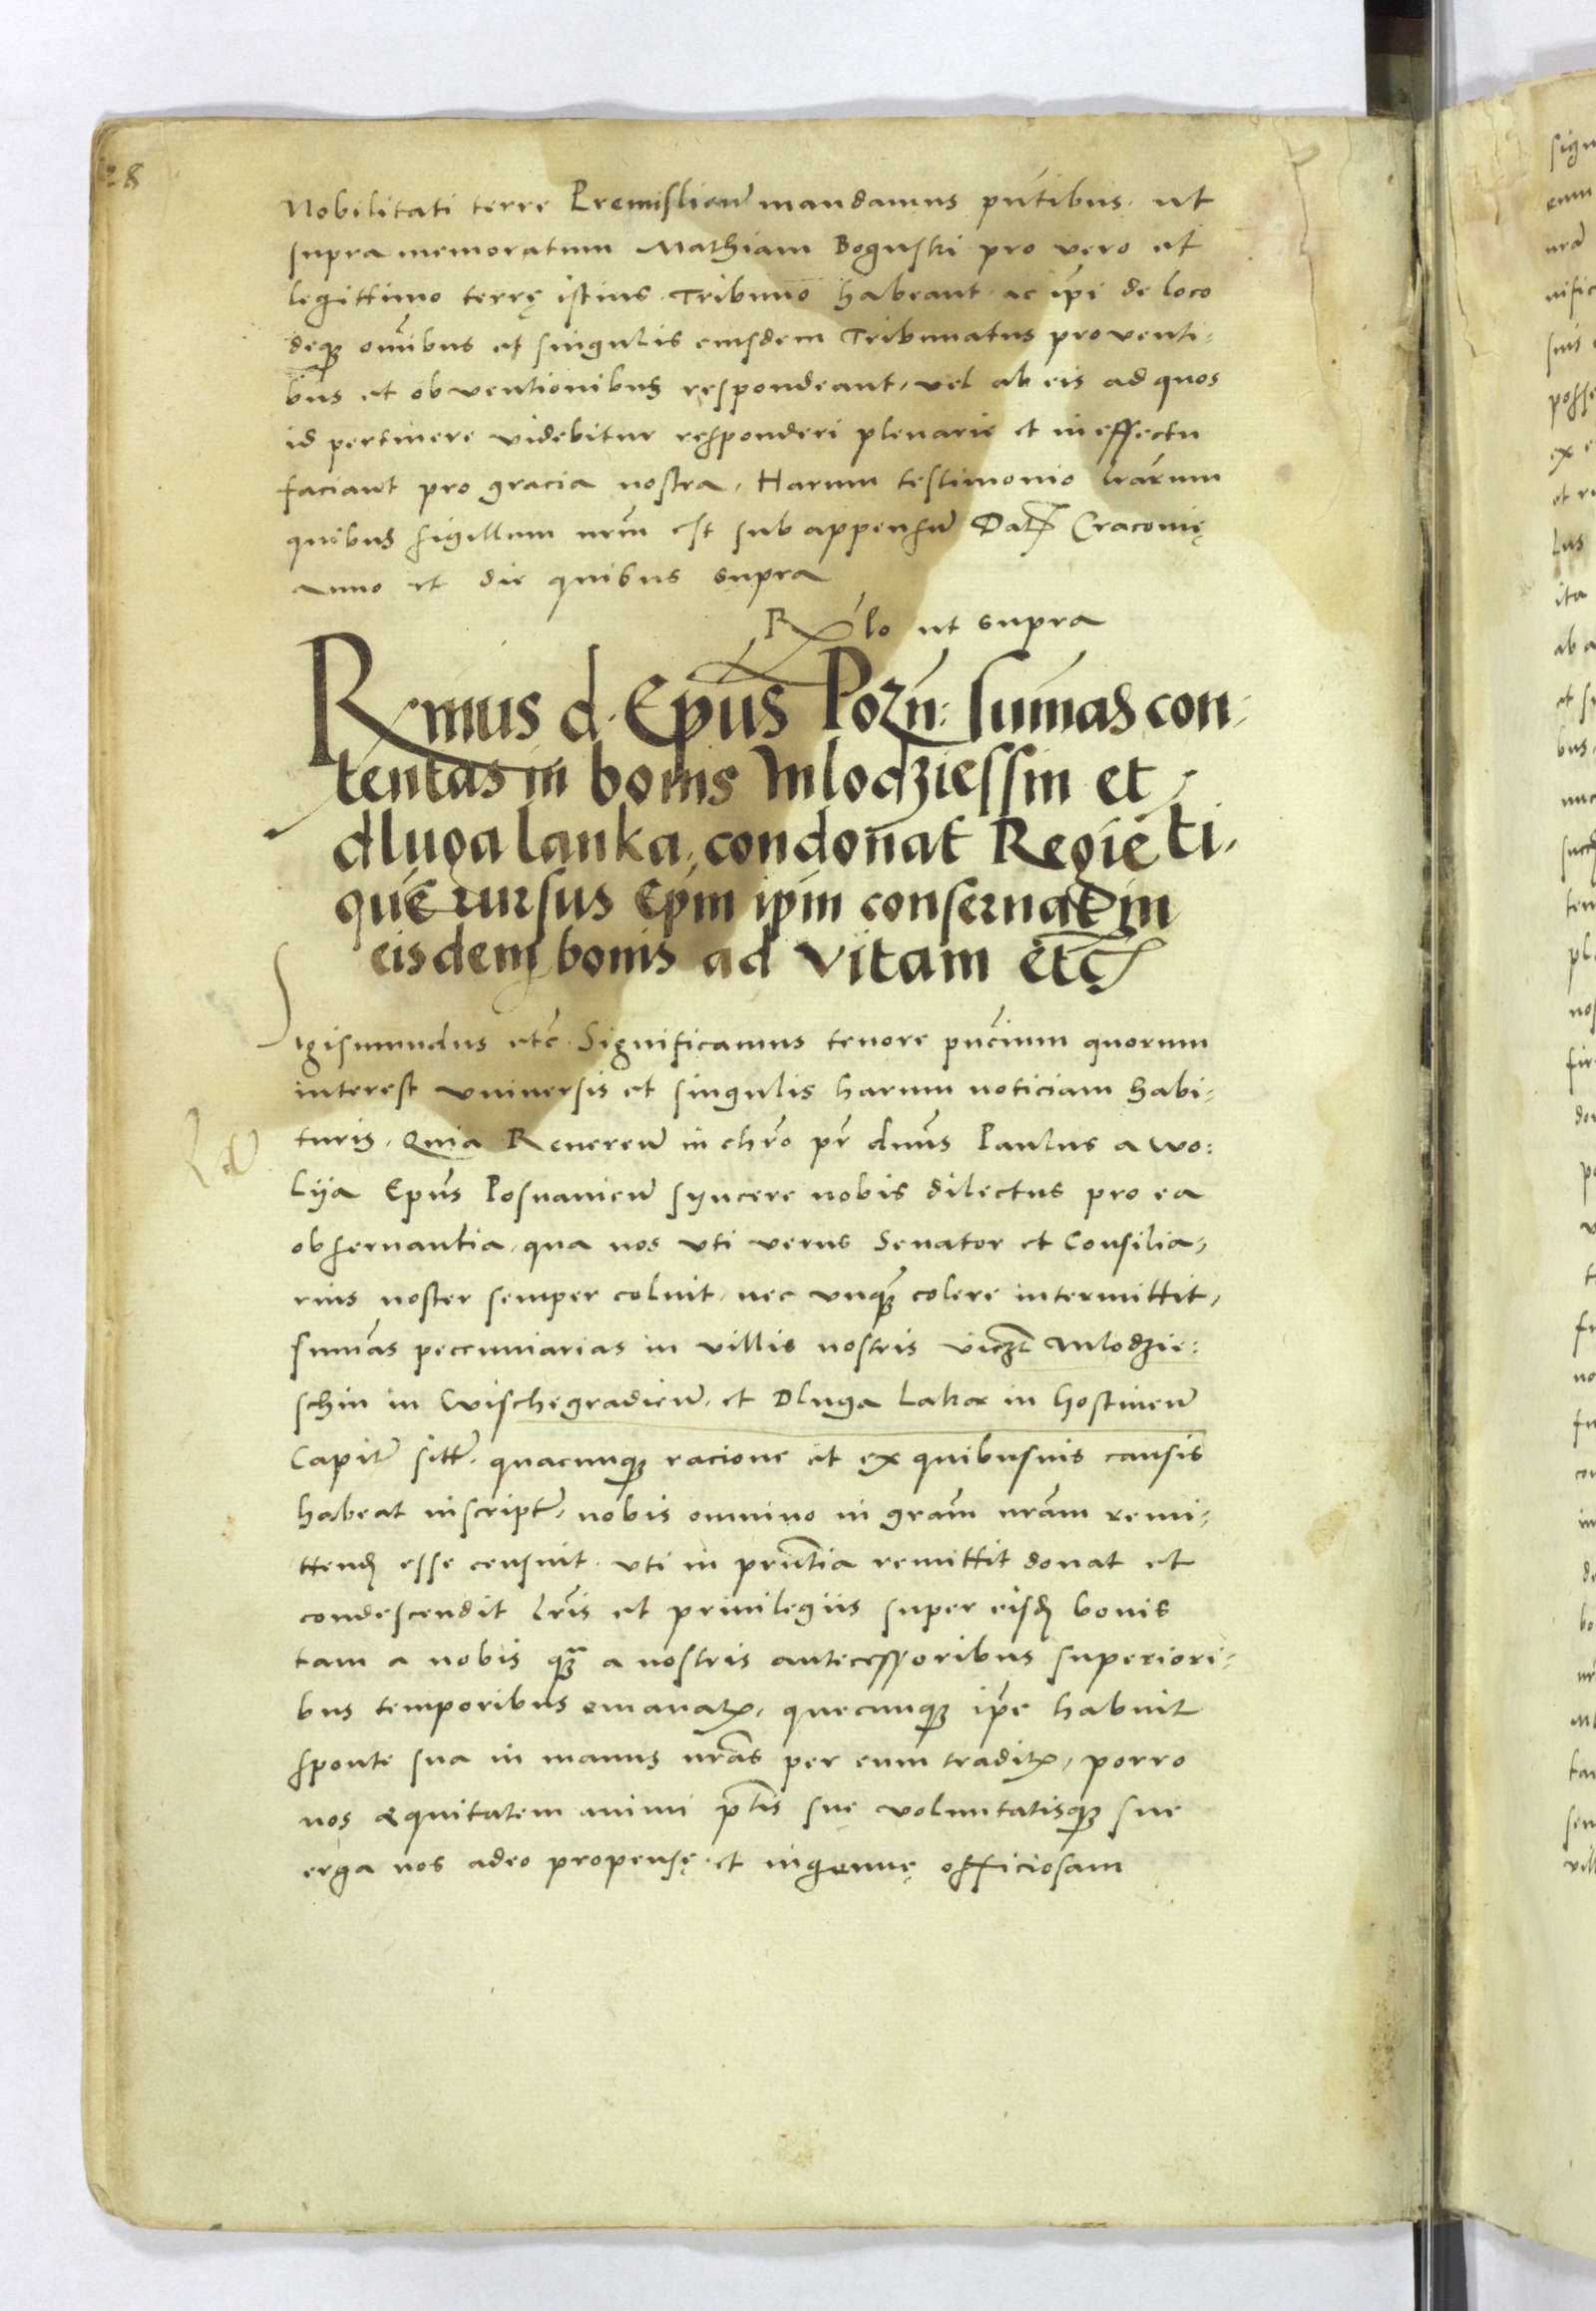 28
Nobilitati terre Premislien mandamus pntibus. ut
supra memoratum Mathiam Boguski pro vero et
legittimo terrę istius Tribuno habeant ac ipi de loco
deq omibus et singulis eiusdem Tribunatus proventi-
bus et obventionibus respondeant, vel ab eis ad quos
id pertinere videbitur responderi plenarie et in effectu
faciant pro gracia nostra, Harum testimonio lrarum
quibus sigillum nrm est sub appensum Dat Cracovię
Anno et die quibus supra
Rlo ut supra
Rmus d. Epus Pozn: sumas con-
tentas in bonis Mlodziessin et
dluga lanka, condonat Regie ti-
que rursus Epm ipm conseruat in
eisdem bonis ad vitam etc
Sigismundus etc. Significamus tenore pncium quorum
interest vniuersis et singulis harum noticiam habi-
turis, Quia Reueren in chro pr dnus Paulus a wo:
lija Epus Posnanien syncere nobis dilectus pro ea
obseruantia, qua nos vti verus Senator et Consilia-
rius noster semper coluit, nec vnq colere intermittit,
sumas peccuniarias in villis nostris viczt Mlodzie:
schin in Wischegradien, et Dluga Laka in Gostinen
Capit sitt. quacunq racione et ex quibusuis causis
habeat inscript, nobis omnino in gram nram remi-
ttend esse censuit, vti in pruntia remittit donat et
condescendit lris et priuilegiis super eisd bonis
tam a nobis q a nostris antecessoribus superiori-
bus temporibus emanat, quecunq ipe habuit
sponte sua in manus nras per eum tradit, porro
nos aequitatem animi ptis sue voluntatisq sue
erga nos adeo propensę et ingenuę officiosam